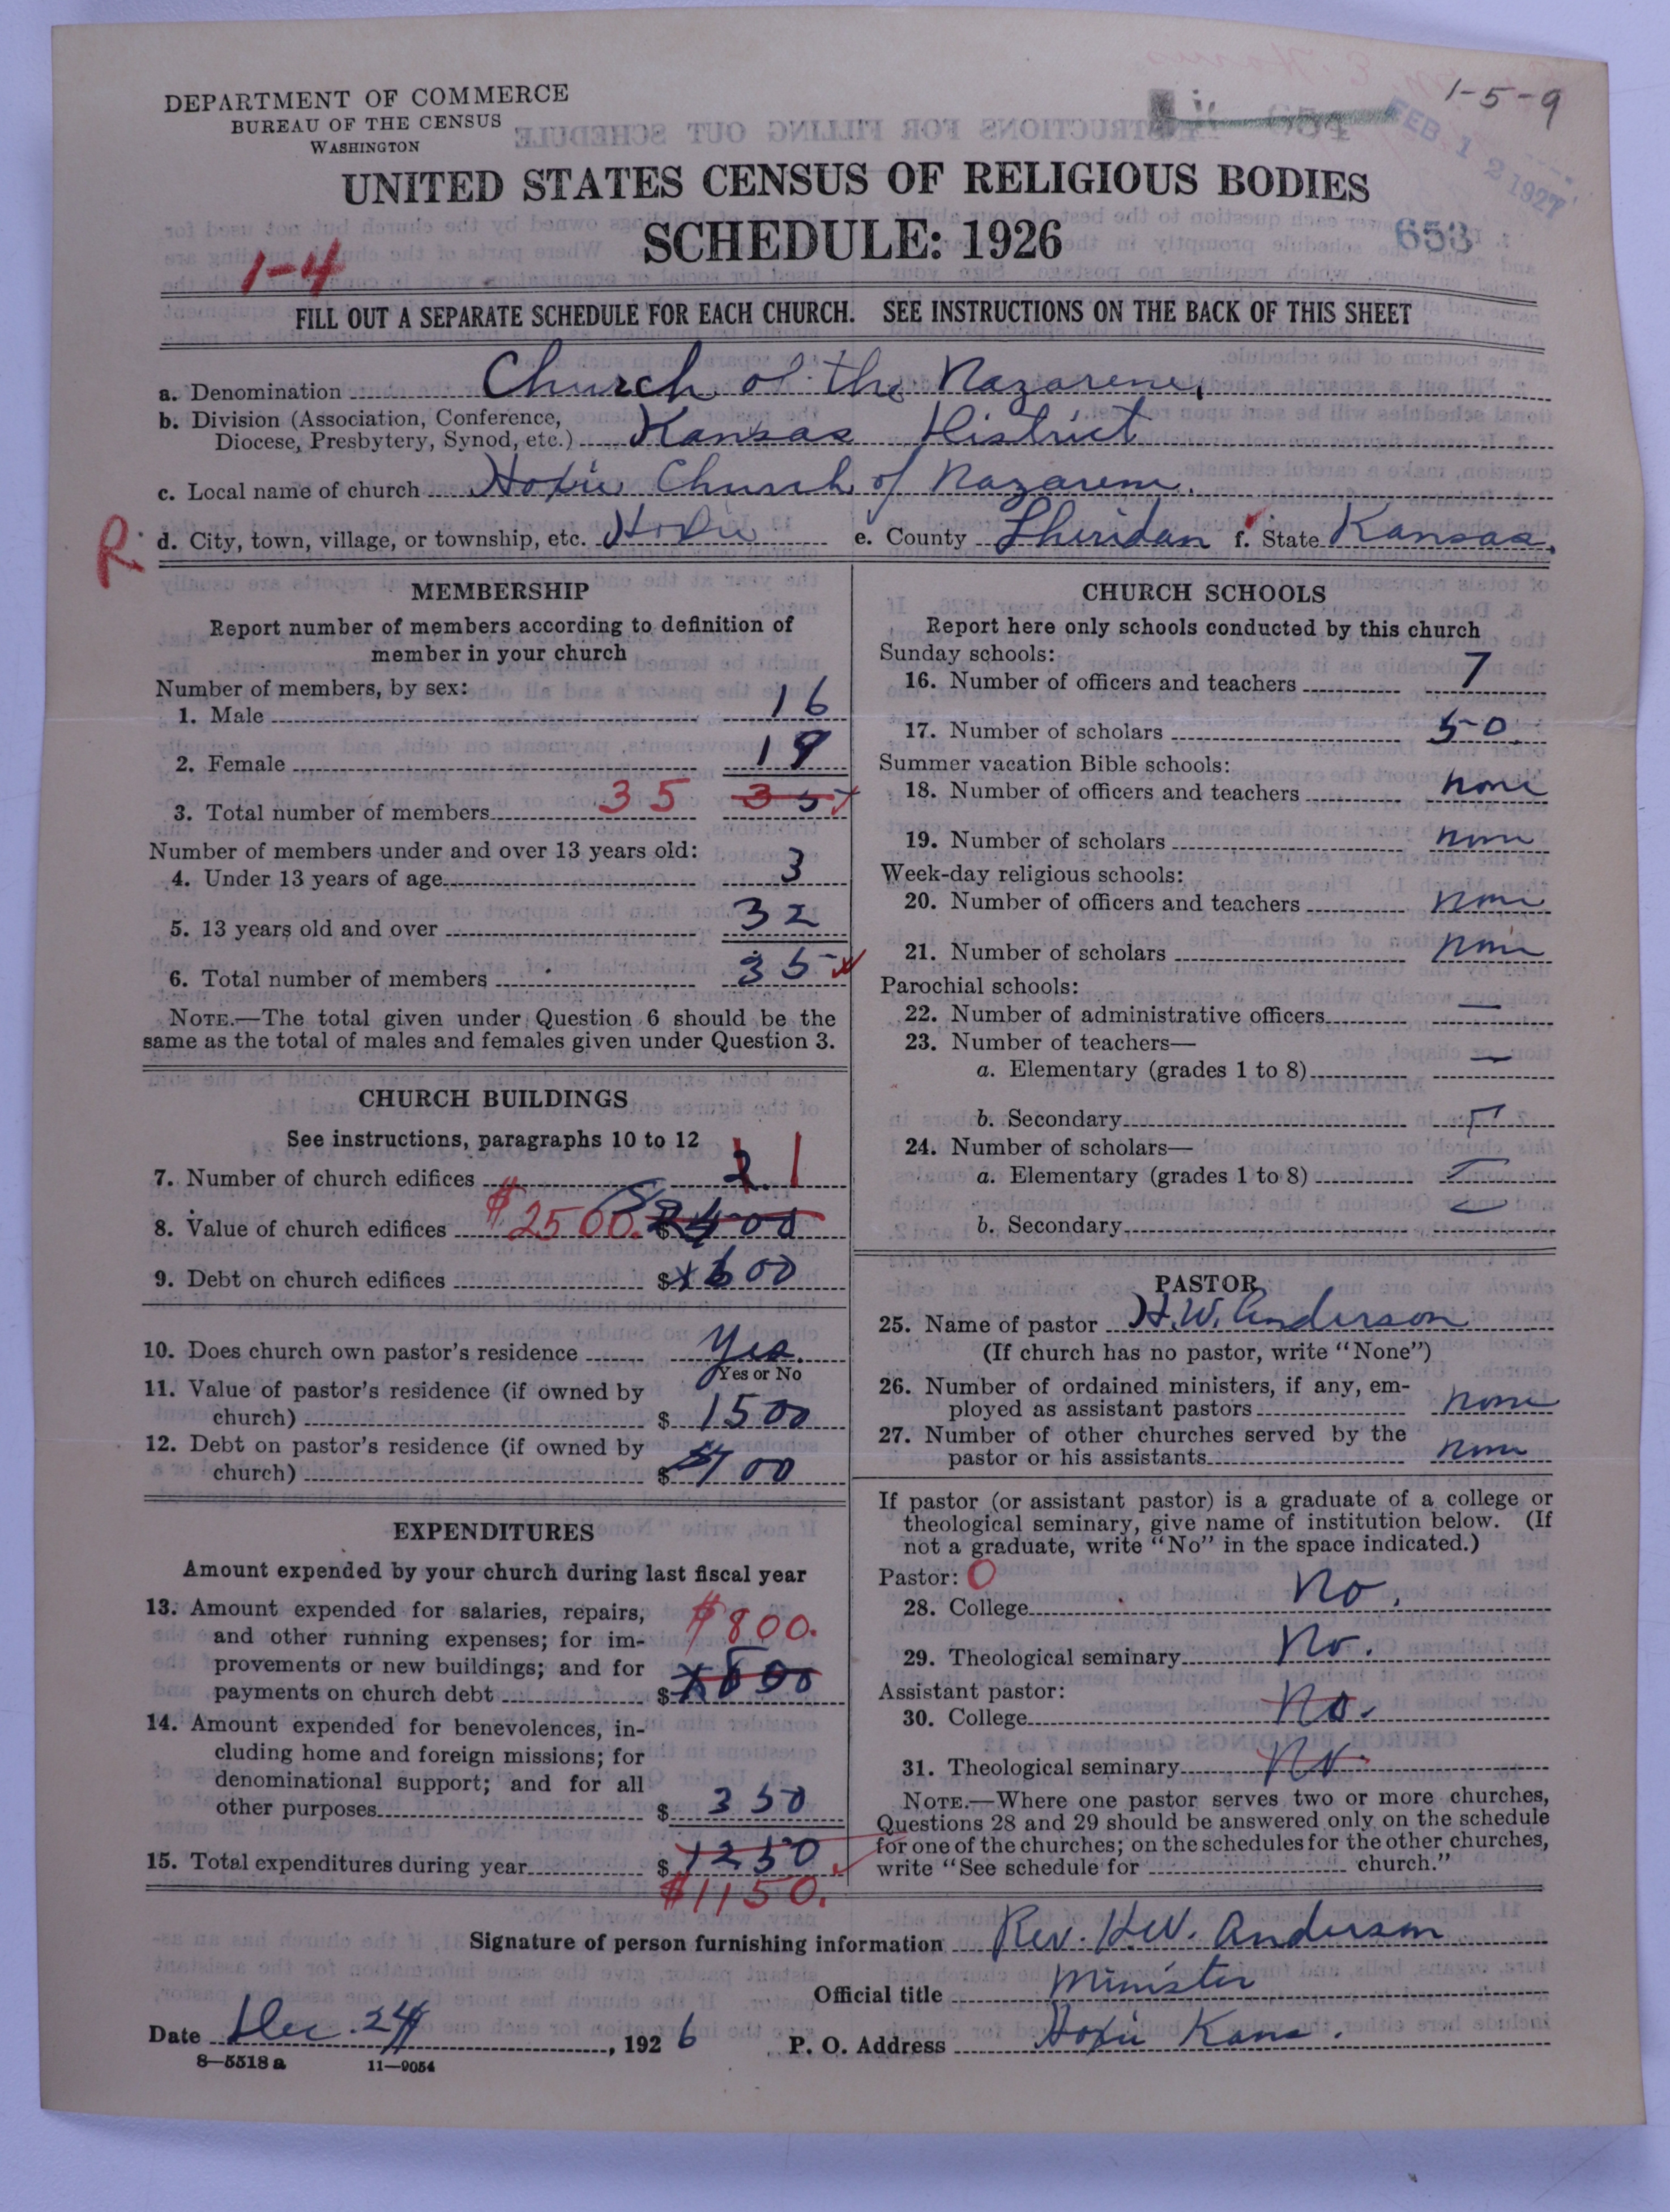 1-5-9
DEPARTMENT OF COMMERCE
BUREAU OF THE CENSUS
WASHINGTON
FEB 12 1927
UNITED STATES CENSUS OF RELIGIOUS BODIES
SCHEDULE: 1926
653
1-4
FILL OUT A SEPARATE SCHEDULE FOR EACH CHURCH. SEE INSTRUCTIONS ON THE BACK OF THIS SHEET
a. Denomination Church of the Nazarene.
b. Division (Association, Conference,
Diocese, Presbytery, Synod, etc.) Kansas District
c. Local name of church Hoxie Church of Nazarene.
R. d. City, town, village, or township, etc. Hoxie e. County Sheridan f. State Kansas.
MEMBERSHIP
Report number of members according to definition of
member in your church
Number of members, by sex:
1. Male 16
2. Female 19
3. Total number of members 35 35
Number of members under and over 13 years old:
4. Under 13 years of age 3
5. 13 years old and over 32
6. Total number of members 35
NOTE.—The total given under Question 6 should be the
same as the total of males and females given under Question 3.
CHURCH BUILDINGS
See instructions, paragraphs 10 to 12
7. Number of church edifices 2 1
8. Value of church edifices $2500. $
9. Debt on church edifices $ 600
10. Does church own pastor's residence Yes.
Yes or No
11. Value of pastor's residence (if owned by
church) $ 1500
12. Debt on pastor's residence (if owned by
church) $ 700
EXPENDITURES
Amount expended by your church during last fiscal year
13. Amount expended for salaries, repairs,
and other running expenses; for im-
provements or new buildings; and for
payments on church debt $800. $
14. Amount expended for benevolences, in-
cluding home and foreign missions; for
denominational support; and for all
other purposes $ 350
15. Total expenditures during year $ 1250
$1150.
CHURCH SCHOOLS
Report here only schools conducted by this church
Sunday schools:
16. Number of officers and teachers 7
17. Number of scholars 50
Summer vacation Bible schools:
18. Number of officers and teachers none
19. Number of scholars none
Week-day religious schools:
20. Number of officers and teachers none
21. Number of scholars none
Parochial schools:
22. Number of administrative officers —
23. Number of teachers—
a. Elementary (grades 1 to 8) —
b. Secondary —
24. Number of scholars—
a. Elementary (grades 1 to 8) —
b. Secondary —
PASTOR
25. Name of pastor H. W. Anderson
(If church has no pastor, write "None")
26. Number of ordained ministers, if any, em-
ployed as assistant pastors none
27. Number of other churches served by the
pastor or his assistants none
If pastor (or assistant pastor) is a graduate of a college or
theological seminary, give name of institution below. (If
not a graduate, write "No" in the space indicated.)
Pastor: O
28. College No.
29. Theological seminary No.
Assistant pastor:
30. College No.
31. Theological seminary No.
NOTE.—Where one pastor serves two or more churches,
Questions 28 and 29 should be answered only on the schedule
for one of the churches; on the schedules for the other churches,
write "See schedule for church."
Signature of person furnishing information Rev. H.W. Anderson
Official title Minister
Date Dec. 24, 1926 P. O. Address Hoxie Kans.
8—5518 a 11—9054